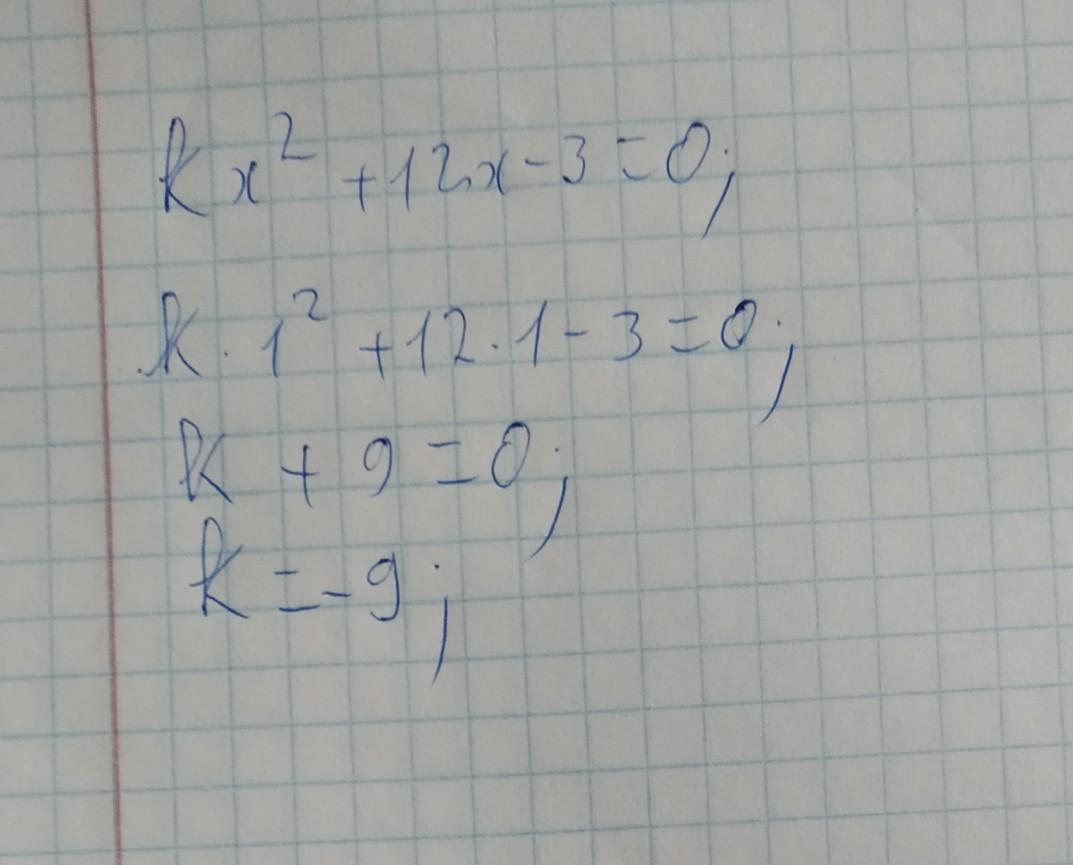 kx² + 12x - 3 = 0;
k · 1² + 12 · 1 - 3 = 0;
k + 9 = 0;
k = -9;